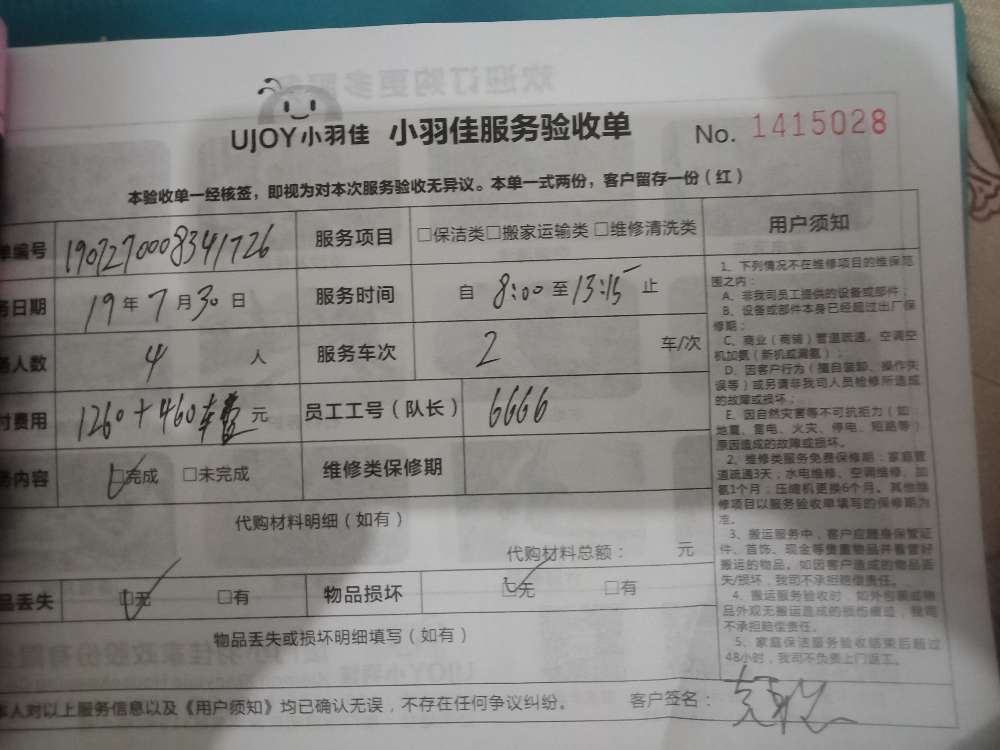 UJOY小羽佳 小羽佳服务验收单 No. 1415028
本验收单一经核签，即视为对本次服务验收无异议。本单一式两份，客户留存一份（红）
单编号 1907270008341726 服务项目 □保洁类□搬家运输类 □维修清洗类
务日期 19 年 7 月 30 日 服务时间 自 8:00 至 13:15 止
务人数 4 人 服务车次 2 车/次
付费用 1260+460车费 元 员工工号（队长） 6666
务内容 □完成 □未完成 维修类保修期
代购材料明细（如有）
代购材料总额： 元
品丢失 □无 □有 物品损坏 □无 □有
物品丢失或损坏明细填写（如有）
本人对以上服务信息以及《用户须知》均已确认无误，不存在任何争议纠纷。 客户签名：
用户须知
1、下列情况不在维修项目的维保范
围之内：
A、非我司员工提供的设备或部件；
B、设备或部件本身已经超过出厂保
修期；
C、商业（商铺）管道疏通，空调空
机加氨（新机或漏氨）；
D、因客户行为（擅自装卸、操作失
误等）或另请非我司人员检修所造成
的故障或损坏；
E、因自然灾害等不可抗拒力（如：
地震、雷电、火灾、停电、短路等）
原因造成的故障或损坏。
2、维修类服务免费保修期：家庭管
道疏通3天，水电维修、空调维修、加
氨1个月；压缩机更换6个月。其他维
修项目以服务验收单填写的保修期为
准。
3、搬运服务中，客户应随身保管证
件、首饰、现金等贵重物品并看管好
搬运的物品。如因客户造成的物品丢
失/损坏，我司不承担赔偿责任。
4、搬运服务验收时，如外包装或物
品外观无搬运造成的损伤痕迹，我司
不承担赔偿责任。
5、家庭保洁服务验收结束后超过
48小时，我司不负责上门返工。